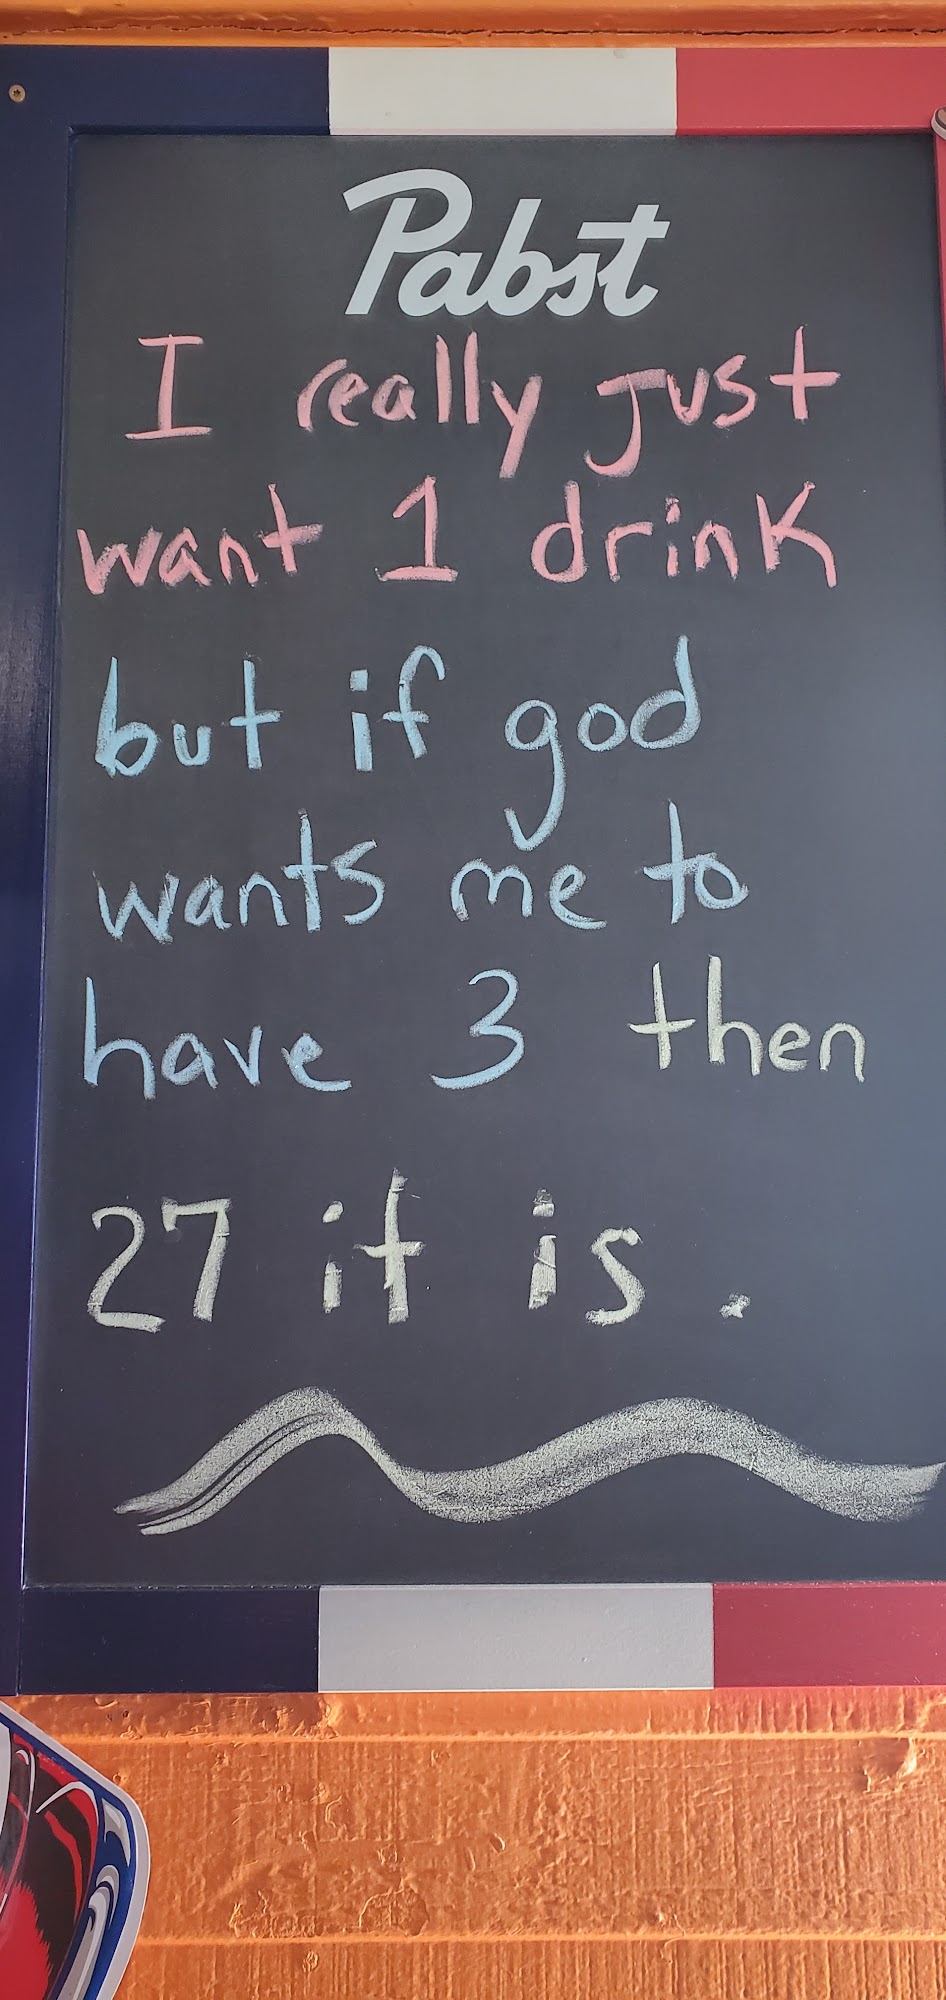 Pabst
I really just
want 1 drink
but if god
wants me to
have 3 then
27 it is.